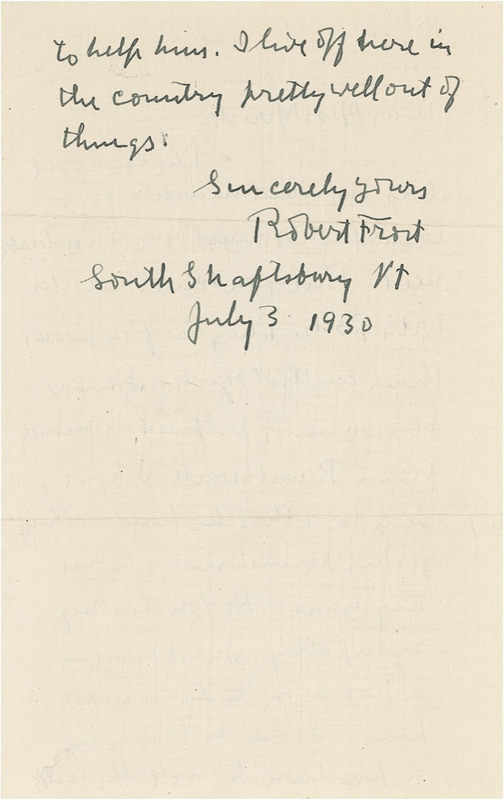 to help him. I live off here in
the country pretty well out of
things.
Sincerely yours
Robert Frost
South Shaftsbury Vt
July 3 1930